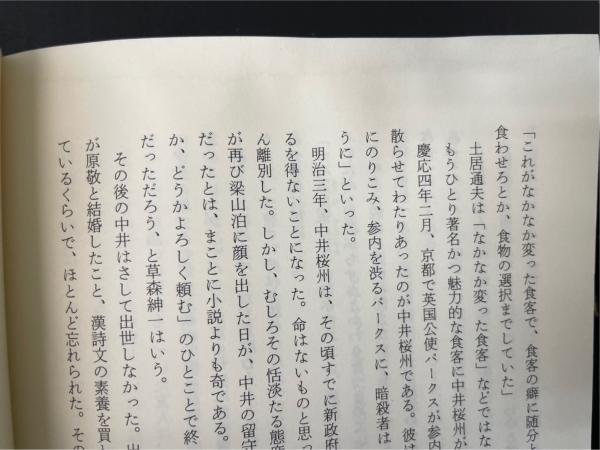 「これがなかなか変った食客で、食客の癖に随分と
食わせろとか、食物の選択までしていた」
土居通夫は「なかなか変った食客」などではな
もうひとり著名かつ魅力的な食客に中井桜州が
慶応四年二月、京都で英国公使パークスが参内
散らせてわたりあったのが中井桜州である。彼は
にのりこみ、参内を渋るパークスに、暗殺者は
うに」といった。
明治三年、中井桜州は、その頃すでに新政府
るを得ないことになった。命はないものと思っ
ん離別した。しかし、むしろその恬淡たる態度
が再び梁山泊に顔を出した日が、中井の留守
だったとは、まことに小説よりも奇である。
か、どうかよろしく頼む」のひとことで終
だっただろう、と草森紳一はいう。
その後の中井はさして出世しなかった。出
が原敬と結婚したこと、漢詩文の素養を買
ているくらいで、ほとんど忘れられた。その